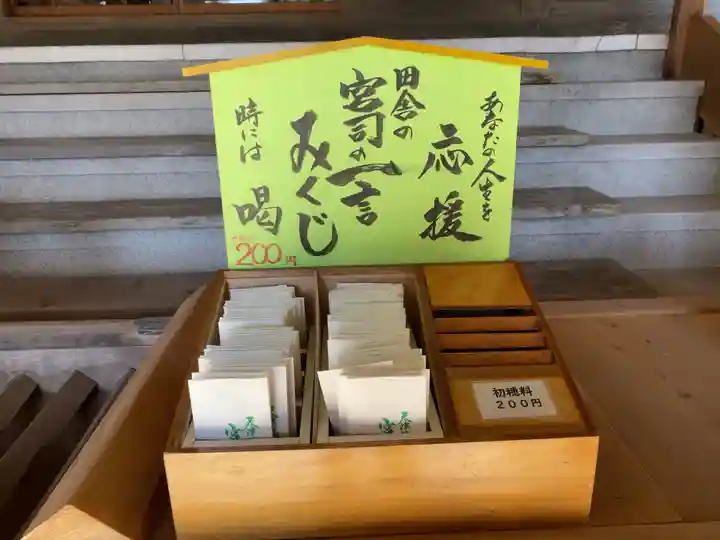 あなたの人生を
応援
田舎の
宮司の一言
みくじ
時には
喝
200円
初穂料
200円